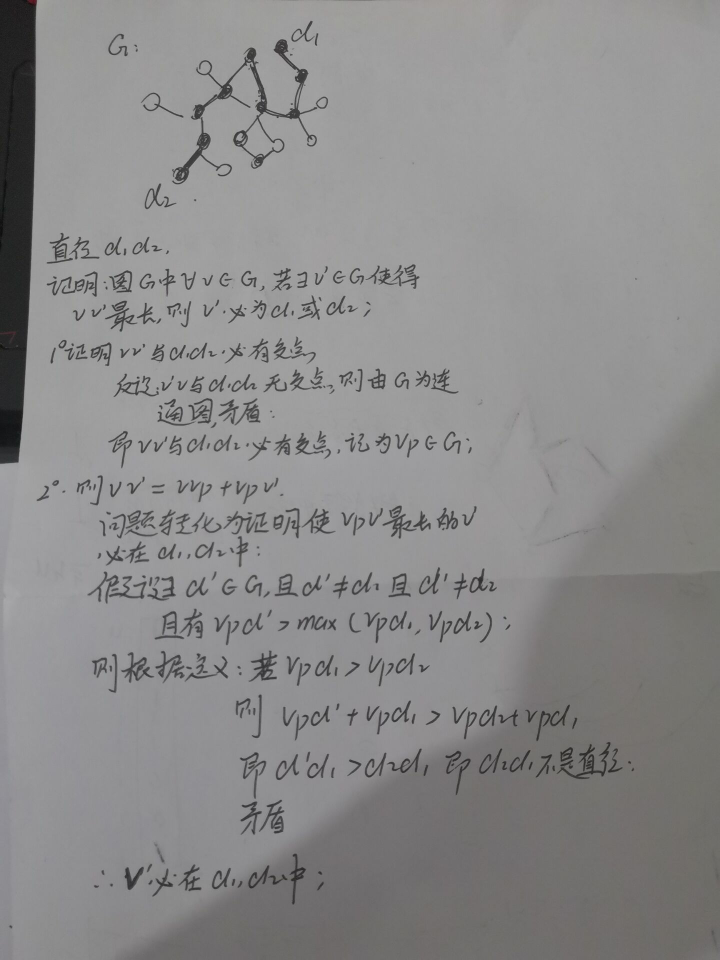 G:
d₁
d₂.
直径d₁d₂,
证明:图G中∀v∈G,若∃v'∈G使得
vv'最长,则v'必为d₁或d₂;
1°证明vv'与d₁d₂必有交点,
反设:v'v与d₁d₂无交点,则由G为连
通图,矛盾:
即vv'与d₁d₂必有交点,记为Vp∈G;
2°.则vv'=vvp+vpv'.
问题转化为证明使vpv'最长的v'
必在d₁,d₂中:
假设∃d'∈G,且d'≠d₁且d'≠d₂
且有vpd'>max(vpd₁,vpd₂);
则根据定义:若vpd₁>vpd₂
则vpd'+vpd₁>vpd₂+vpd₁
即d'd₁>d₂d₁即d₂d₁不是直径:
矛盾
∴v'必在d₁,d₂中;